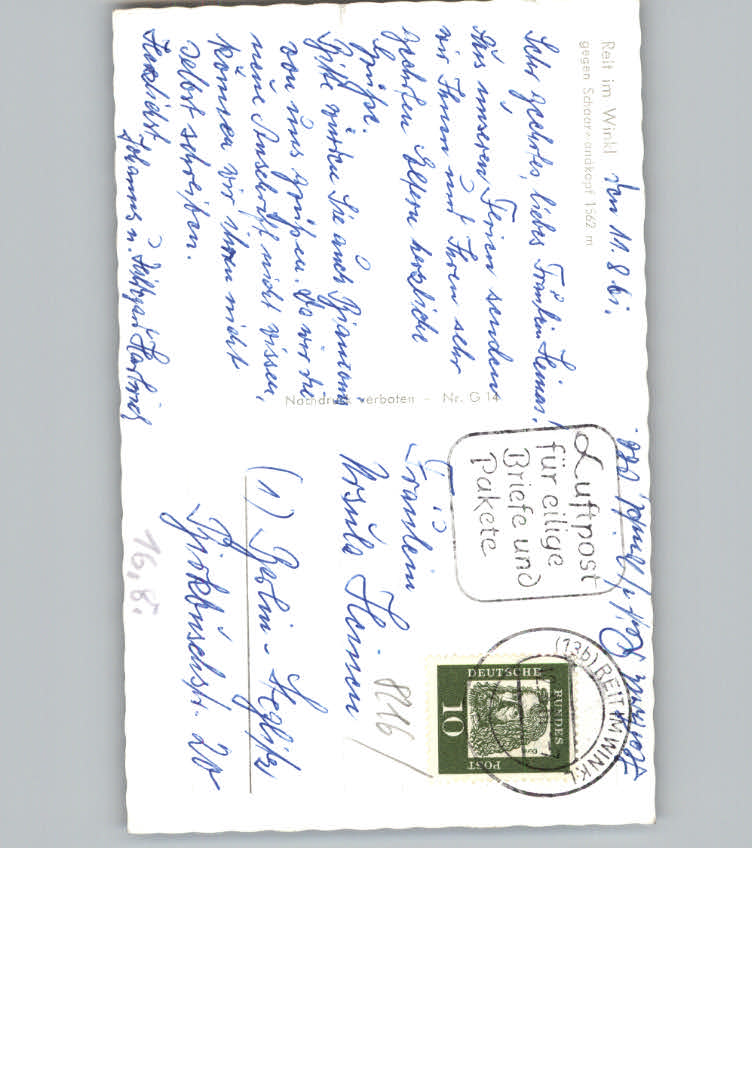 Reit im Winkl
gegen Schaareandkopf 1562 m
den 11. 8. 61.
Sehr geehrtes, liebes Fräulein Heinen,
Aus unseren Ferien senden
wir Ihnen und Ihren sehr
geehrten Eltern herzliche
Grüße.
Bitte würden Sie auch
von uns grüßen. Da wir die
neue Anschrift nicht wissen,
können wir ihnen nicht
selbst schreiben.
Herzlichst
Johannes u.
Nachdruck verboten - Nr. G 14
Luftpost
für eilige
Briefe und
Pakete
(13b) REIT IM WINKL
DEUTSCHE BUNDESPOST
10
Fräulein
Ursula Heinen
(1) Berlin-Steglitz
Birkbuschstr. 20
8216
16. 8.